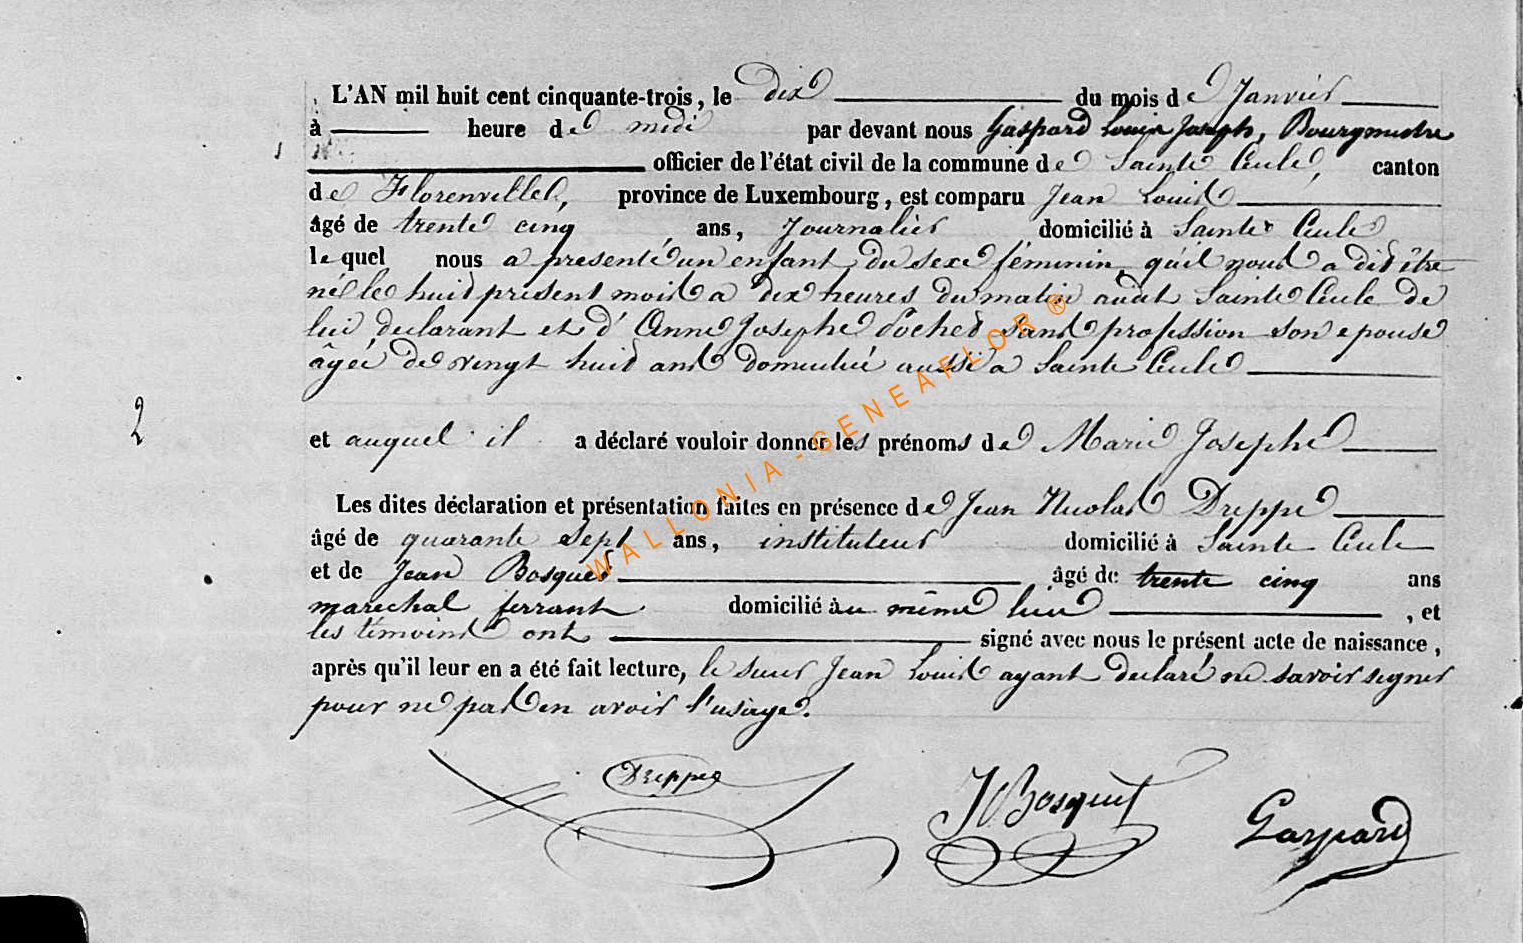 L'AN mil huit cent cinquante-trois, le dix du mois de Janvier
à heure de midi par devant nous Gaspard Louis Joseph, Bourgmestre
officier de l'état civil de la commune de Sainte Cecile, canton
de Florenville, province de Luxembourg, est comparu Jean Louis
âgé de trente cinq ans, Journalier domicilié à Sainte Cecile
lequel nous a presenté un enfant du sexe féminin, qu'il nous a dit être
né le huit present mois a dix heures du matin audt Sainte Cecile de
lui declarant et d'Anne Josephe sans profession son epouse
âgée de vingt huit ans domicilié aussi a Sainte Cecile
2
et auquel il a déclaré vouloir donner les prénoms de Marie Josephe
Les dites déclaration et présentation faites en présence de Jean Nicolas Dreppe
âgé de quarante sept ans, instituteur domicilié à Sainte Cecile
et de Jean Bosquet âgé de trente cinq ans
marechal ferrant domicilié au même lieu , et
les témoins ont signé avec nous le présent acte de naissance,
après qu'il leur en a été fait lecture, le sieur Jean Louis ayant declaré ne savoir signer
pour ne pas en avoir l'usage.
Dreppe J Bosquet Gaspard
WALLONIA-GENEAFLOR ®